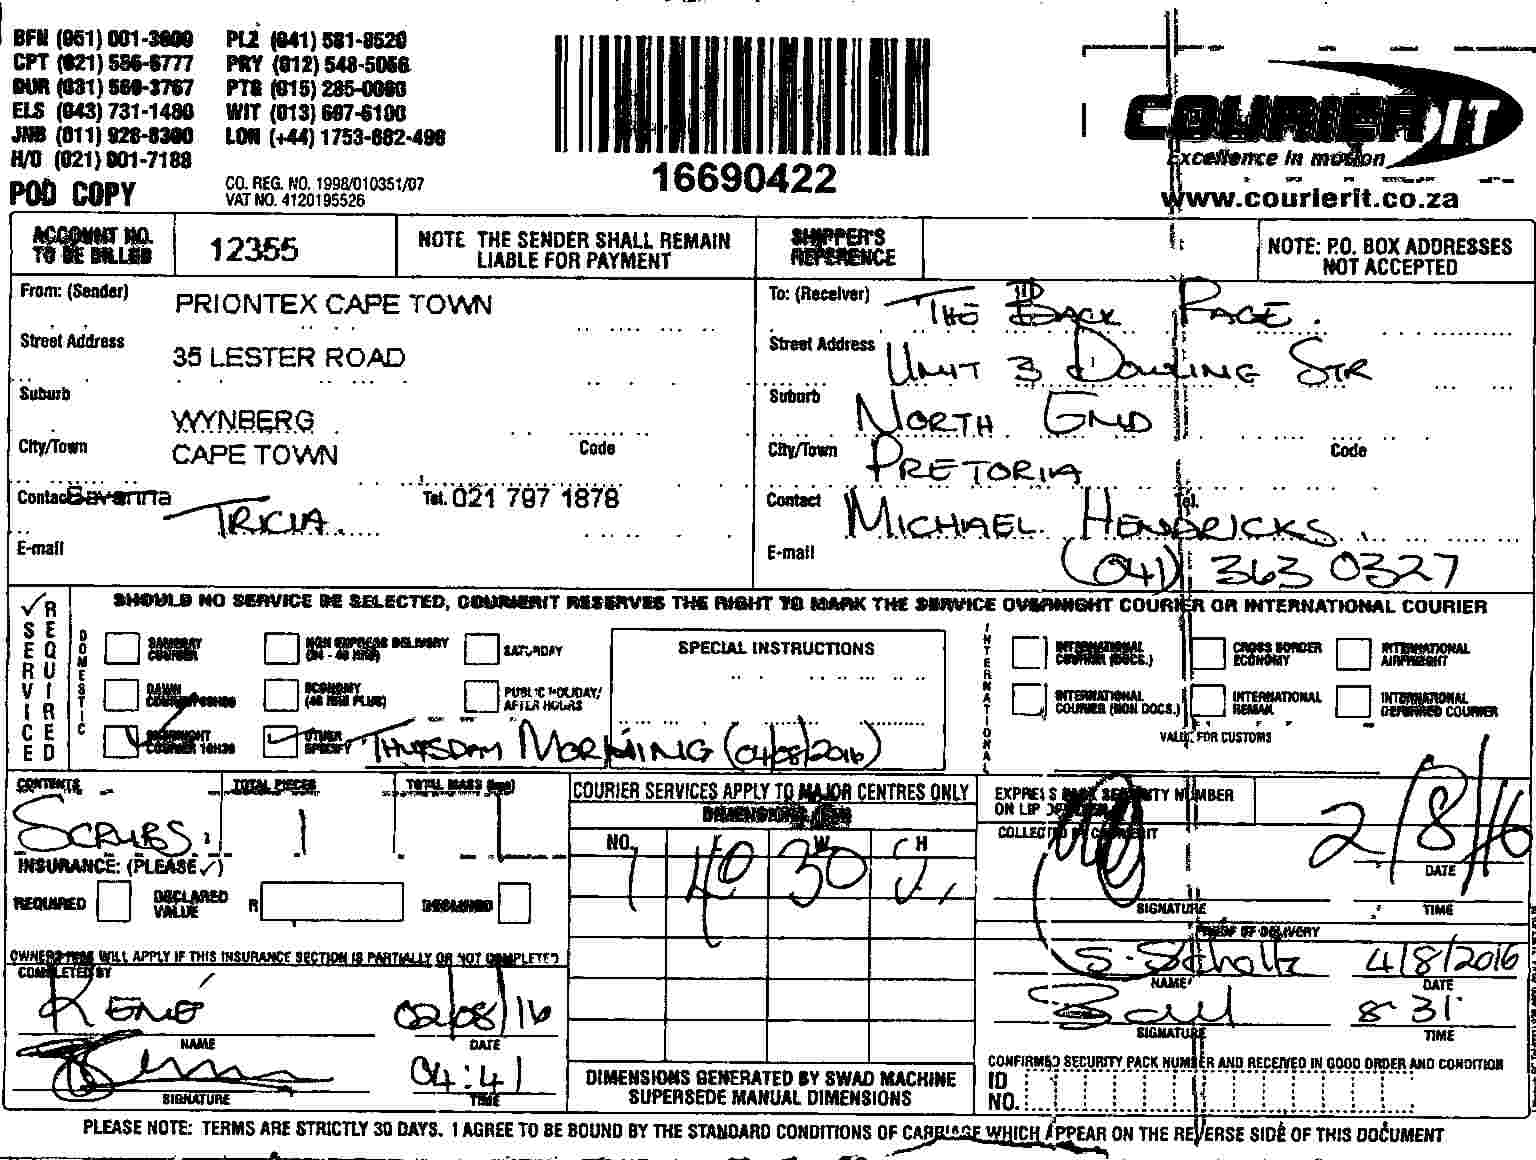 BFN (051) 001-3600 PLZ (041) 581-8520
CPT (021) 586-6777 PRY (012) 548-5056
DUR (031) 569-3767 PTG (015) 285-0060
ELS (043) 731-1480 WIT (013) 697-6100
JNB (011) 928-8300 LON (+44) 1753-682-496
H/O (021) 001-7188
POD COPY
CO. REG. NO. 1998/010351/07
VAT NO. 4120195526
16690422
COURIER IT
Excellence in motion
www.courierit.co.za
ACCOUNT NO. TO BE BILLED 12355
NOTE THE SENDER SHALL REMAIN LIABLE FOR PAYMENT
SHIPPER'S REFERENCE
NOTE: P.O. BOX ADDRESSES NOT ACCEPTED
From: (Sender) PRIONTEX CAPE TOWN
Street Address 35 LESTER ROAD
Suburb WYNBERG
City/Town CAPE TOWN Code
Contact Savanna TRICIA. Tel. 021 797 1878
E-mail
To: (Receiver) THE BACK PAGE.
Street Address UNIT 3 DOWLING STR
Suburb NORTH END
City/Town PRETORIA Code
Contact MICHAEL HENDRICKS. Tel.
E-mail (041) 363 0327
SERVICE REQUIRED
SHOULD NO SERVICE BE SELECTED, COURIERIT RESERVES THE RIGHT TO MARK THE SERVICE OVERNIGHT COURIER OR INTERNATIONAL COURIER
DOMESTIC
SAMEDAY COURIER
NON EXPRESS DELIVERY (24 - 48 HRS)
SATURDAY
DAWN COURIER
ECONOMY (48 HRS PLUS)
PUBLIC HOLIDAY/ AFTER HOURS
OVERNIGHT COURIER 10H30
OTHER SPECIFY THURSDAY MORNING (04/08/2016)
SPECIAL INSTRUCTIONS
INTERNATIONAL
INTERNATIONAL COURIER (DOCS.)
CROSS BORDER ECONOMY
INTERNATIONAL AIRFREIGHT
INTERNATIONAL COURIER (NON DOCS.)
INTERNATIONAL REMAIL
INTERNATIONAL DEFERRED COURIER
VALUE FOR CUSTOMS
CONTENTS TOTAL PIECES TOTAL MASS (kgs)
SCRUBS. 1 1
INSURANCE: (PLEASE ✓)
REQUIRED DECLARED VALUE R DECLINED
OWNERS RISK WILL APPLY IF THIS INSURANCE SECTION IS PARTIALLY OR NOT COMPLETED
COMPLETED BY
RENÉ 02/08/16
NAME DATE
04:41
SIGNATURE TIME
COURIER SERVICES APPLY TO MAJOR CENTRES ONLY
DIMENSIONS (CM)
NO. L W H
1 40 30 2
DIMENSIONS GENERATED BY SWAD MACHINE SUPERSEDE MANUAL DIMENSIONS
EXPRESS PACK SECURITY NUMBER ON LIP OF
COLLECTED BY COURIERIT
2/8/16
DATE
SIGNATURE TIME
PROOF OF DELIVERY
S. Scholtz 4/8/2016
NAME DATE
8:31
SIGNATURE TIME
CONFIRMED SECURITY PACK NUMBER AND RECEIVED IN GOOD ORDER AND CONDITION
ID NO.
PLEASE NOTE: TERMS ARE STRICTLY 30 DAYS. I AGREE TO BE BOUND BY THE STANDARD CONDITIONS OF CARRIAGE WHICH APPEAR ON THE REVERSE SIDE OF THIS DOCUMENT